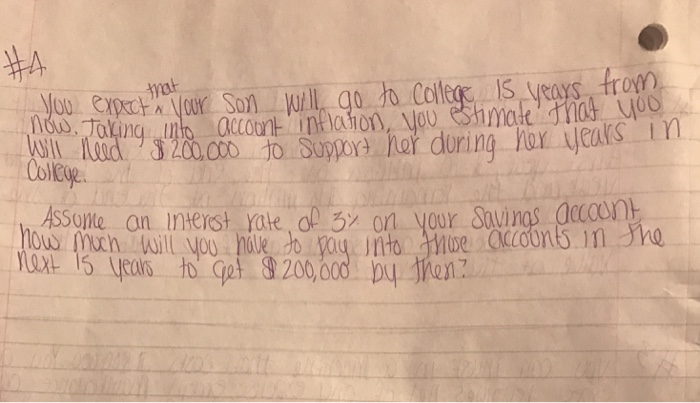 #4
You expect ^ that your son will go to college 15 years from
now. Taking into account inflation, you estimate that you
will need $200,000 to support her during her years in
College.
Assume an interest rate of 3% on your savings account
how much will you have to pay into those accounts in the
next 15 years to get $200,000 by then?